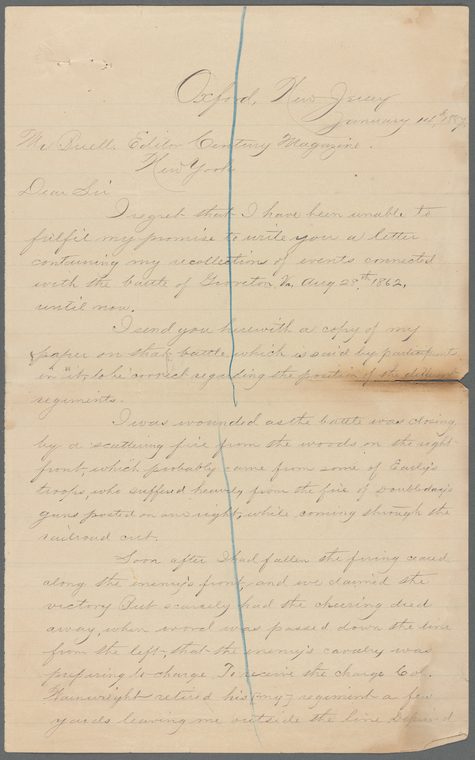 Oxford, New Jersey
January 14th 1887
Mr Buell, Editor Century Magazine.
New York
Dear Sir
I regret that I have been unable to
fulfil my promise to write you a letter
containing my recollections of events connected
with the battle of Groveton, Va. Aug 28th 1862,
until now.
I send you herewith a copy of my
paper on that battle, which is said by participants
in it, to be correct regarding the position of the different
regiments.
I was wounded as the battle was closing,
by a scattering fire from the woods on the right
front, which probably came from some of Early's
troops, who suffered heavily from the fire of Doubleday's
guns posted on our right, while coming through the
railroad cut.
Soon after I had fallen the firing ceased
along the enemy's front, and we claimed the
victory But scarcely had the cheering died
away, when word was passed down the line
from the left, that the enemy's cavalry was
preparing to charge. To receive the charge Col.
Wainwright retired his [my] regiment a few
yards leaving me outside the line